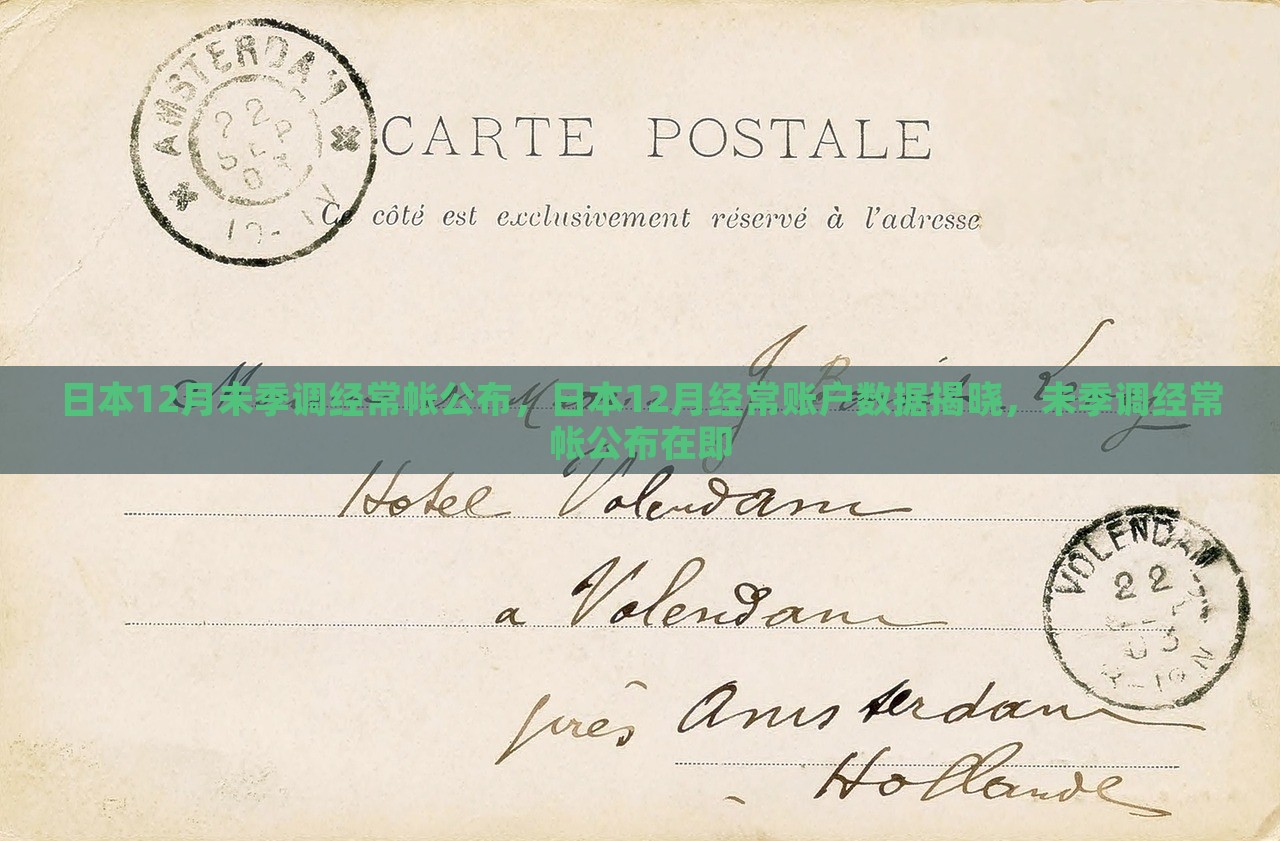 AMSTERDAM
22
SEP
CARTE POSTALE
Ce côté est exclusivement réservé à l'adresse
日本12月未季调经常帐公布，日本12月经常账户数据揭晓，未季调经常
帐公布在即
Hotel Volendam
VOLENDAM
22
03
a Volendam
près Amsterdam
Hollande